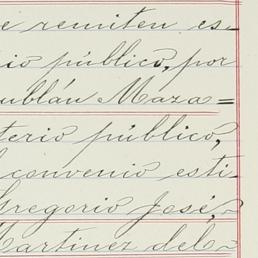 e remiten es-
io público, por
ublán Maza=
terio público,
l convenio esti-
Gregorio José,
Martinez del